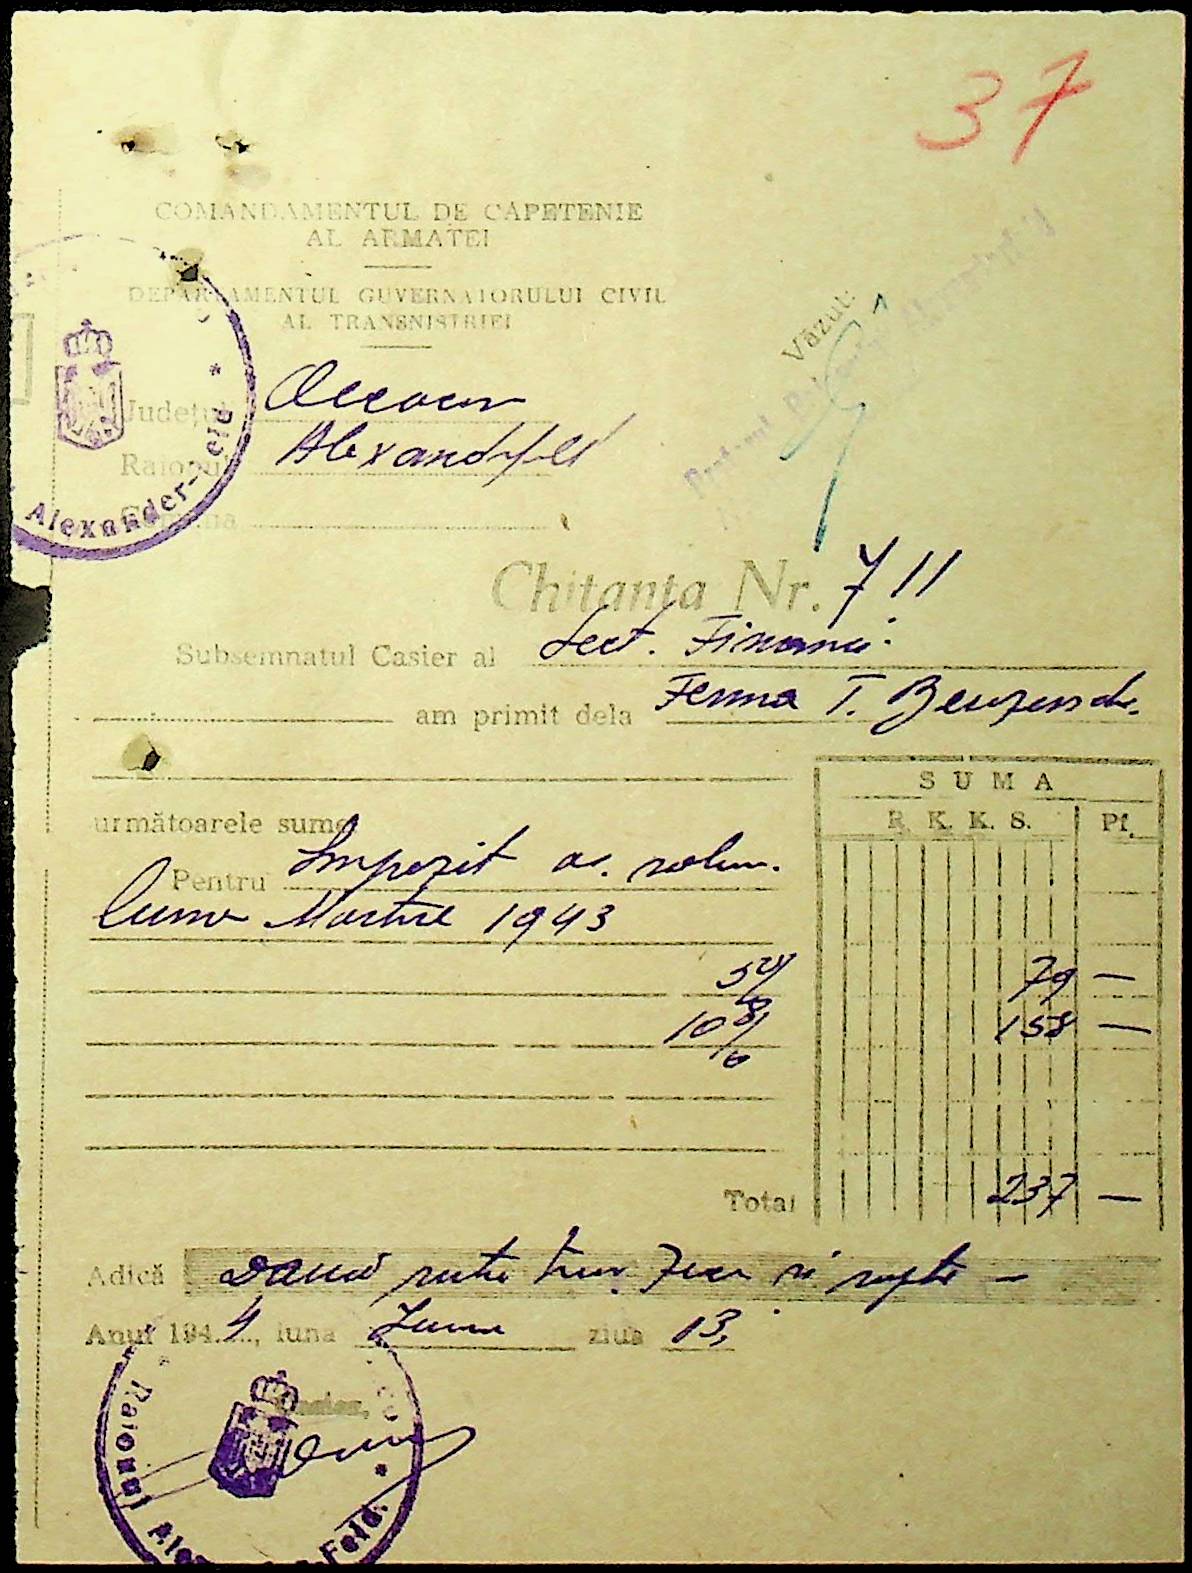 37
COMANDAMENTUL DE CAPETENIE
AL ARMATEI
DEPARTAMENTUL GUVERNATORULUI CIVIL
AL TRANSNISTRIEI
Văzut:
Județul
Raionul Alexandfeld
Alexander-Feld
Chitanța Nr. 711
Subsemnatul Casier al Sect. Financi.
am primit dela Ferma T.
SUMA
R. K. K. S. Pf.
următoarele sume
Pentru Impozit
luna Martie 1943
5% 79 —
10% 158 —
Total 237 —
Adică Două sute trei zeci si șapte —
Anul 194 luna ziua 13,
Casier,
Raionul Alexander-Feld.